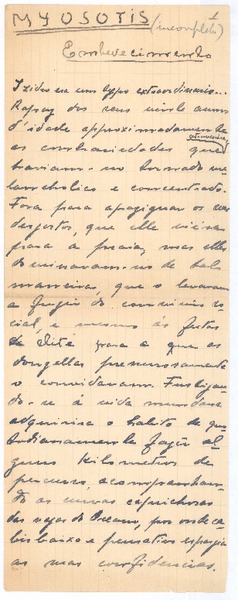 MYOSOTIS (incompleto) 1
Embevecimento
Isidro era um typo extraordinario...
Rapaz dos seus vinte annos
d'idade approximadamente,
as contrariedades que
haviam-no tornado me-
lancholico e concentrado.
Fora para apaziguar os
desgostos, que elle viera
para a praia, mas elles
dominavam-no de tal
maneira, que o levavam
a fugir do convivio so-
cial, e mesmo ás festas
de élite para que as
donzellas pressurosamente
o convidavam. Fustigan-
do-se á vida mundana
adquirira o habito de quo-
tidianamente fazer al-
guns kilometros de
percurso, acompanhan-
do as curvas caprichosas
das vagas do Oceano, por onde ca-
bisbaixo e pensativo espargia
as suas confidencias.